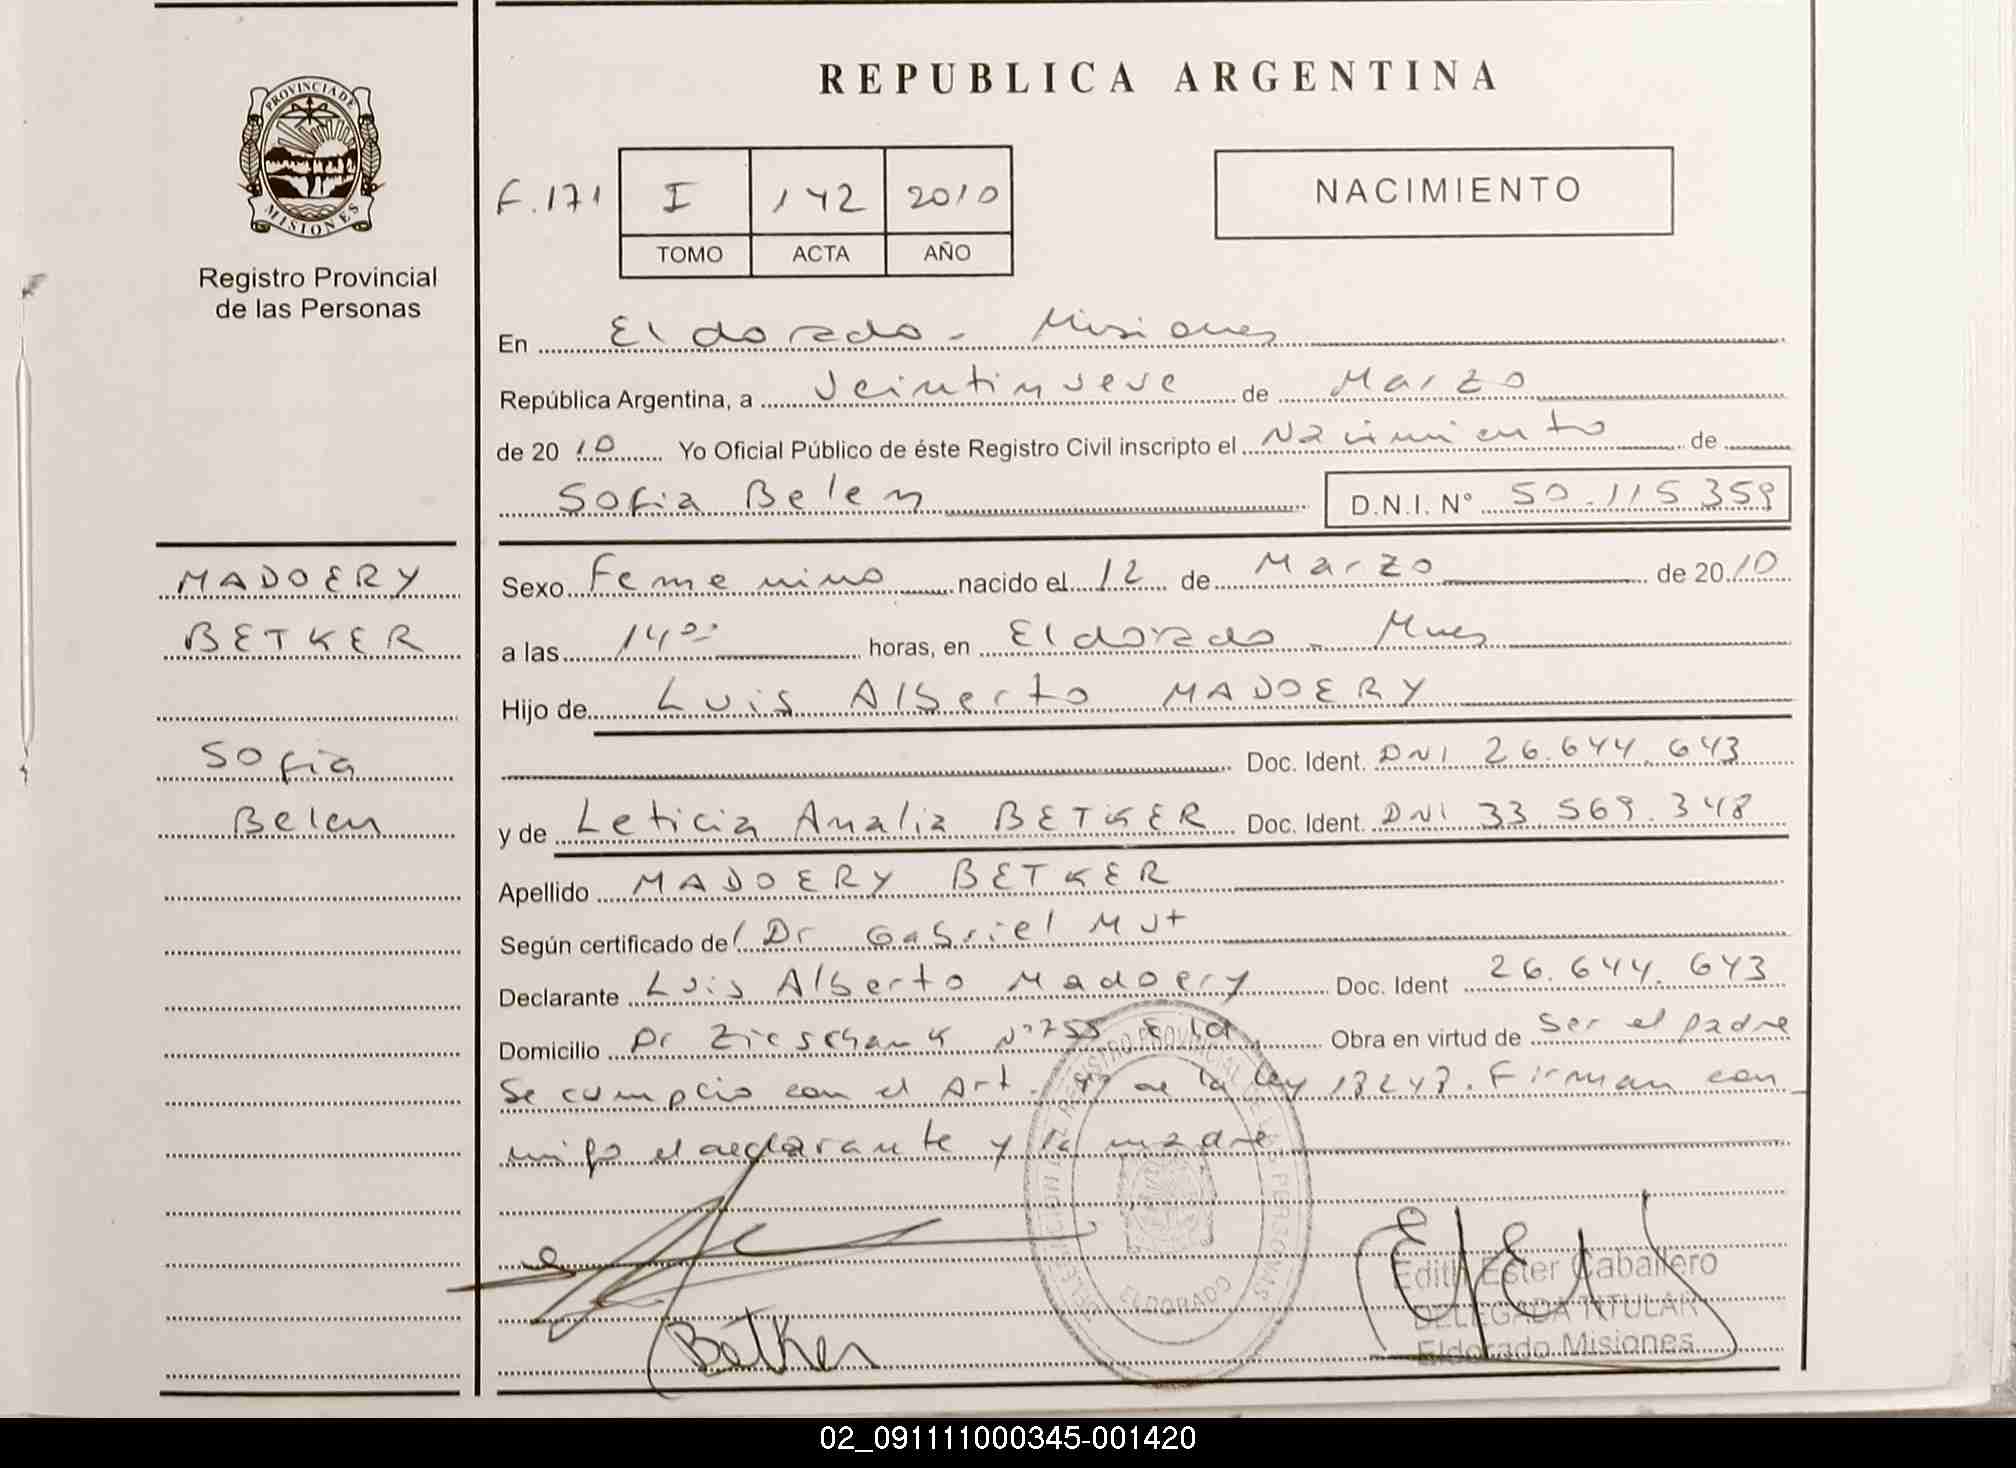 PROVINCIA DE
MISIONES
Registro Provincial
de las Personas
MADOERY
BETKER
Sofia
Belen
REPUBLICA ARGENTINA
F.171
I 142 2010
TOMO ACTA AÑO
NACIMIENTO
En Eldorado - Misiones
República Argentina, a Veintinueve de Marzo
de 2010 Yo Oficial Público de éste Registro Civil inscripto el Nacimiento de
Sofia Belen D.N.I. N° 50.115.359
Sexo Femenino nacido el 12 de Marzo de 2010
a las 14 00 horas, en Eldorado - Mnes
Hijo de Luis Alberto MADOERY
Doc. Ident. DNI 26.644.643
y de Leticia Analia BETKER Doc. Ident. DNI 33.569.348
Apellido MADOERY BETKER
Según certificado del Dr Gabriel Mut
Declarante Luis Alberto Madoery Doc. Ident 26.644.643
Domicilio Dr Zieschank N° 755 Eld Obra en virtud de ser el padre
Se cumplio con el Art. de la ley 18248. Firman con
migo el declarante y la madre
Betker
REGISTRO PROVINCIAL DE LAS PERSONAS
ELDORADO
Edith Ester Caballero
DELEGADA TITULAR
Eldorado Misiones
02_091111000345-001420